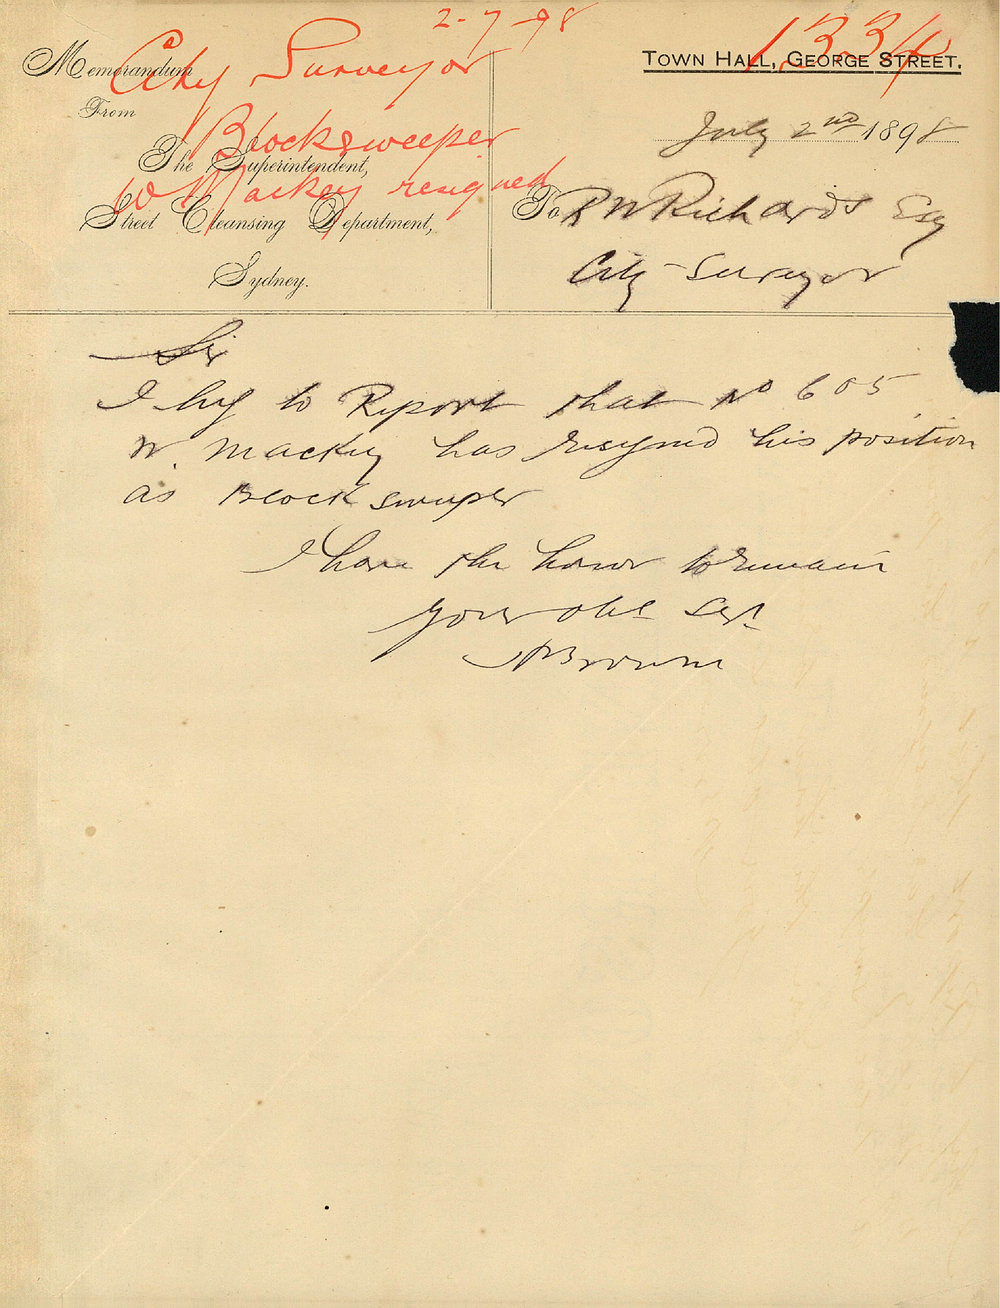 2-7-98
1334
City Surveyor
Blocksweeper
W Mackey resigned
Memorandum
From
The Superintendent,
Street Cleansing Department,
Sydney.
TOWN HALL, GEORGE STREET.
July 2nd 1898
To R W Richards Esq
City Surveyor
Sir
I beg to Report that No 605
W. Mackey has resigned his position
as Block sweeper
I have the honor to remain
Your obt Sert
Brown